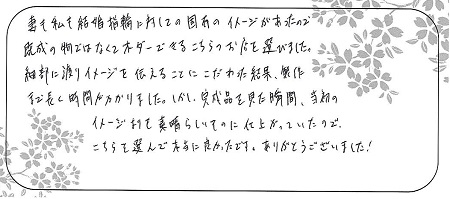 妻も私も結婚指輪に対しての固有のイメージがあったので
既成の物ではなくてオーダーできるこちらのお店を選びました。
細部に渡りイメージを伝えることにこだわった結果、製作
まで長く時間がかかりました。しかし、完成品を見た瞬間、当初の
イメージよりも素晴らしいものに仕上がっていたので、
こちらを選んで本当に良かったです。ありがとうございました!